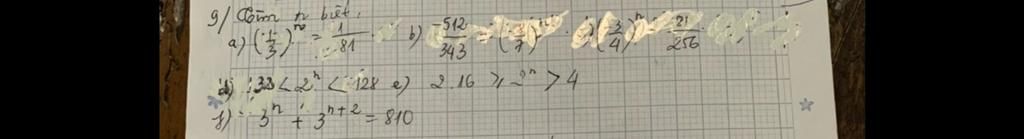 9/ Tìm n biết.
a) (1/3)^n = 1/81. b) -512/343 = ( /7)^n. c) (3/4)^n = 21/256
d) 32 < 2^n < 128 e) 2.16 ≥ 2^n > 4
f) 3^n + 3^{n+2} = 810